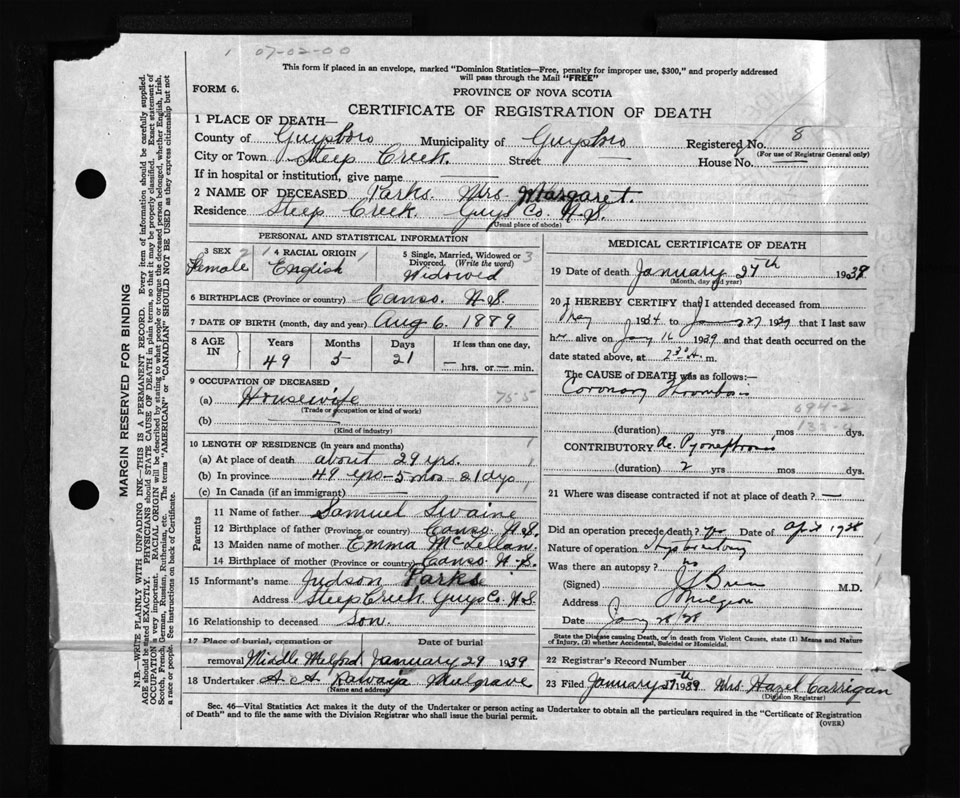 1 07-02-00
This form if placed in an envelope, marked "Dominion Statistics—Free, penalty for improper use, $300," and properly addressed
will pass through the Mail "FREE"
FORM 6.
PROVINCE OF NOVA SCOTIA
CERTIFICATE OF REGISTRATION OF DEATH
1 PLACE OF DEATH—
County of Guysboro Municipality of Guysboro Registered No. 8
(For use of Registrar General only)
City or Town Steep Creek. Street — House No. —
If in hospital or institution, give name —
2 NAME OF DECEASED Parks. Mrs. Margaret.
Residence Steep Creek. Guys Co. N.S.
(Usual place of abode)
PERSONAL AND STATISTICAL INFORMATION
3 SEX Female
4 RACIAL ORIGIN English
5 Single, Married, Widowed or Divorced. (Write the word) Widowed
6 BIRTHPLACE (Province or country) Canso. N.S.
7 DATE OF BIRTH (month, day and year) Aug 6. 1889.
8 AGE IN Years Months Days If less than one day,
49 5 21 — hrs. or — min.
9 OCCUPATION OF DECEASED
(a) Housewife 75-5
(Trade or occupation or kind of work)
(b) —
(Kind of industry)
10 LENGTH OF RESIDENCE (In years and months)
(a) At place of death about 29 yrs.
(b) In province 49 yrs - 5 mos - 21 dys
(c) In Canada (if an immigrant) —
Parents
11 Name of father Samuel Swaine
12 Birthplace of father (Province or country) Canso. N.S.
13 Maiden name of mother Emma McLellan.
14 Birthplace of mother (Province or country) Canso N.S.
15 Informant's name Judson Parks
Address Steep Creek. Guys Co. N.S.
16 Relationship to deceased Son.
17 Place of burial, cremation or removal Date of burial
Middle Melford January 29 1939
18 Undertaker Mulgrave
(Name and address)
MEDICAL CERTIFICATE OF DEATH
19 Date of death January 27th 1939
(Month, day and year)
20 I HEREBY CERTIFY that I attended deceased from
May 1934 to Jan 27 1939 that I last saw
her alive on Jany 16 1939 and that death occurred on the
date stated above, at m.
The CAUSE OF DEATH was as follows:—
Coronary Thrombosis
(duration) yrs. mos dys.
CONTRIBUTORY Pyonephrosis
(duration) 2 yrs. mos. dys.
21 Where was disease contracted if not at place of death? —
Did an operation precede death? Yes Date of April 1938
Nature of operation
Was there an autopsy? no
(Signed) M.D.
Address Mulgrave
Date Jany
State the Disease causing Death, or in death from Violent Causes, state (1) Means and Nature
of Injury, (2) whether Accidental, Suicidal or Homicidal.
22 Registrar's Record Number
23 Filed January 27th 1939 Mrs. Hazel Carrigan
(Division Registrar)
Sec. 46—Vital Statistics Act makes it the duty of the Undertaker or person acting as Undertaker to obtain all the particulars required in the "Certificate of Registration
of Death" and to file the same with the Division Registrar who shall issue the burial permit.
(OVER)
MARGIN RESERVED FOR BINDING
N.B.—WRITE PLAINLY WITH UNFADING INK—THIS IS A PERMANENT RECORD. Every item of information should be carefully supplied.
AGE should be stated EXACTLY. PHYSICIANS should STATE CAUSE OF DEATH in plain terms, so that it may be properly classified. Exact statement of
OCCUPATION is very important. RACIAL ORIGIN will be described by stating to what people or tongue the deceased person belonged, whether English, Irish,
Scotch, French, German, Russian, Ruthenian, etc. The terms "AMERICAN" or "CANADIAN" SHOULD NOT BE USED as they express citizenship but not
a race or people. See instructions on back of Certificate.